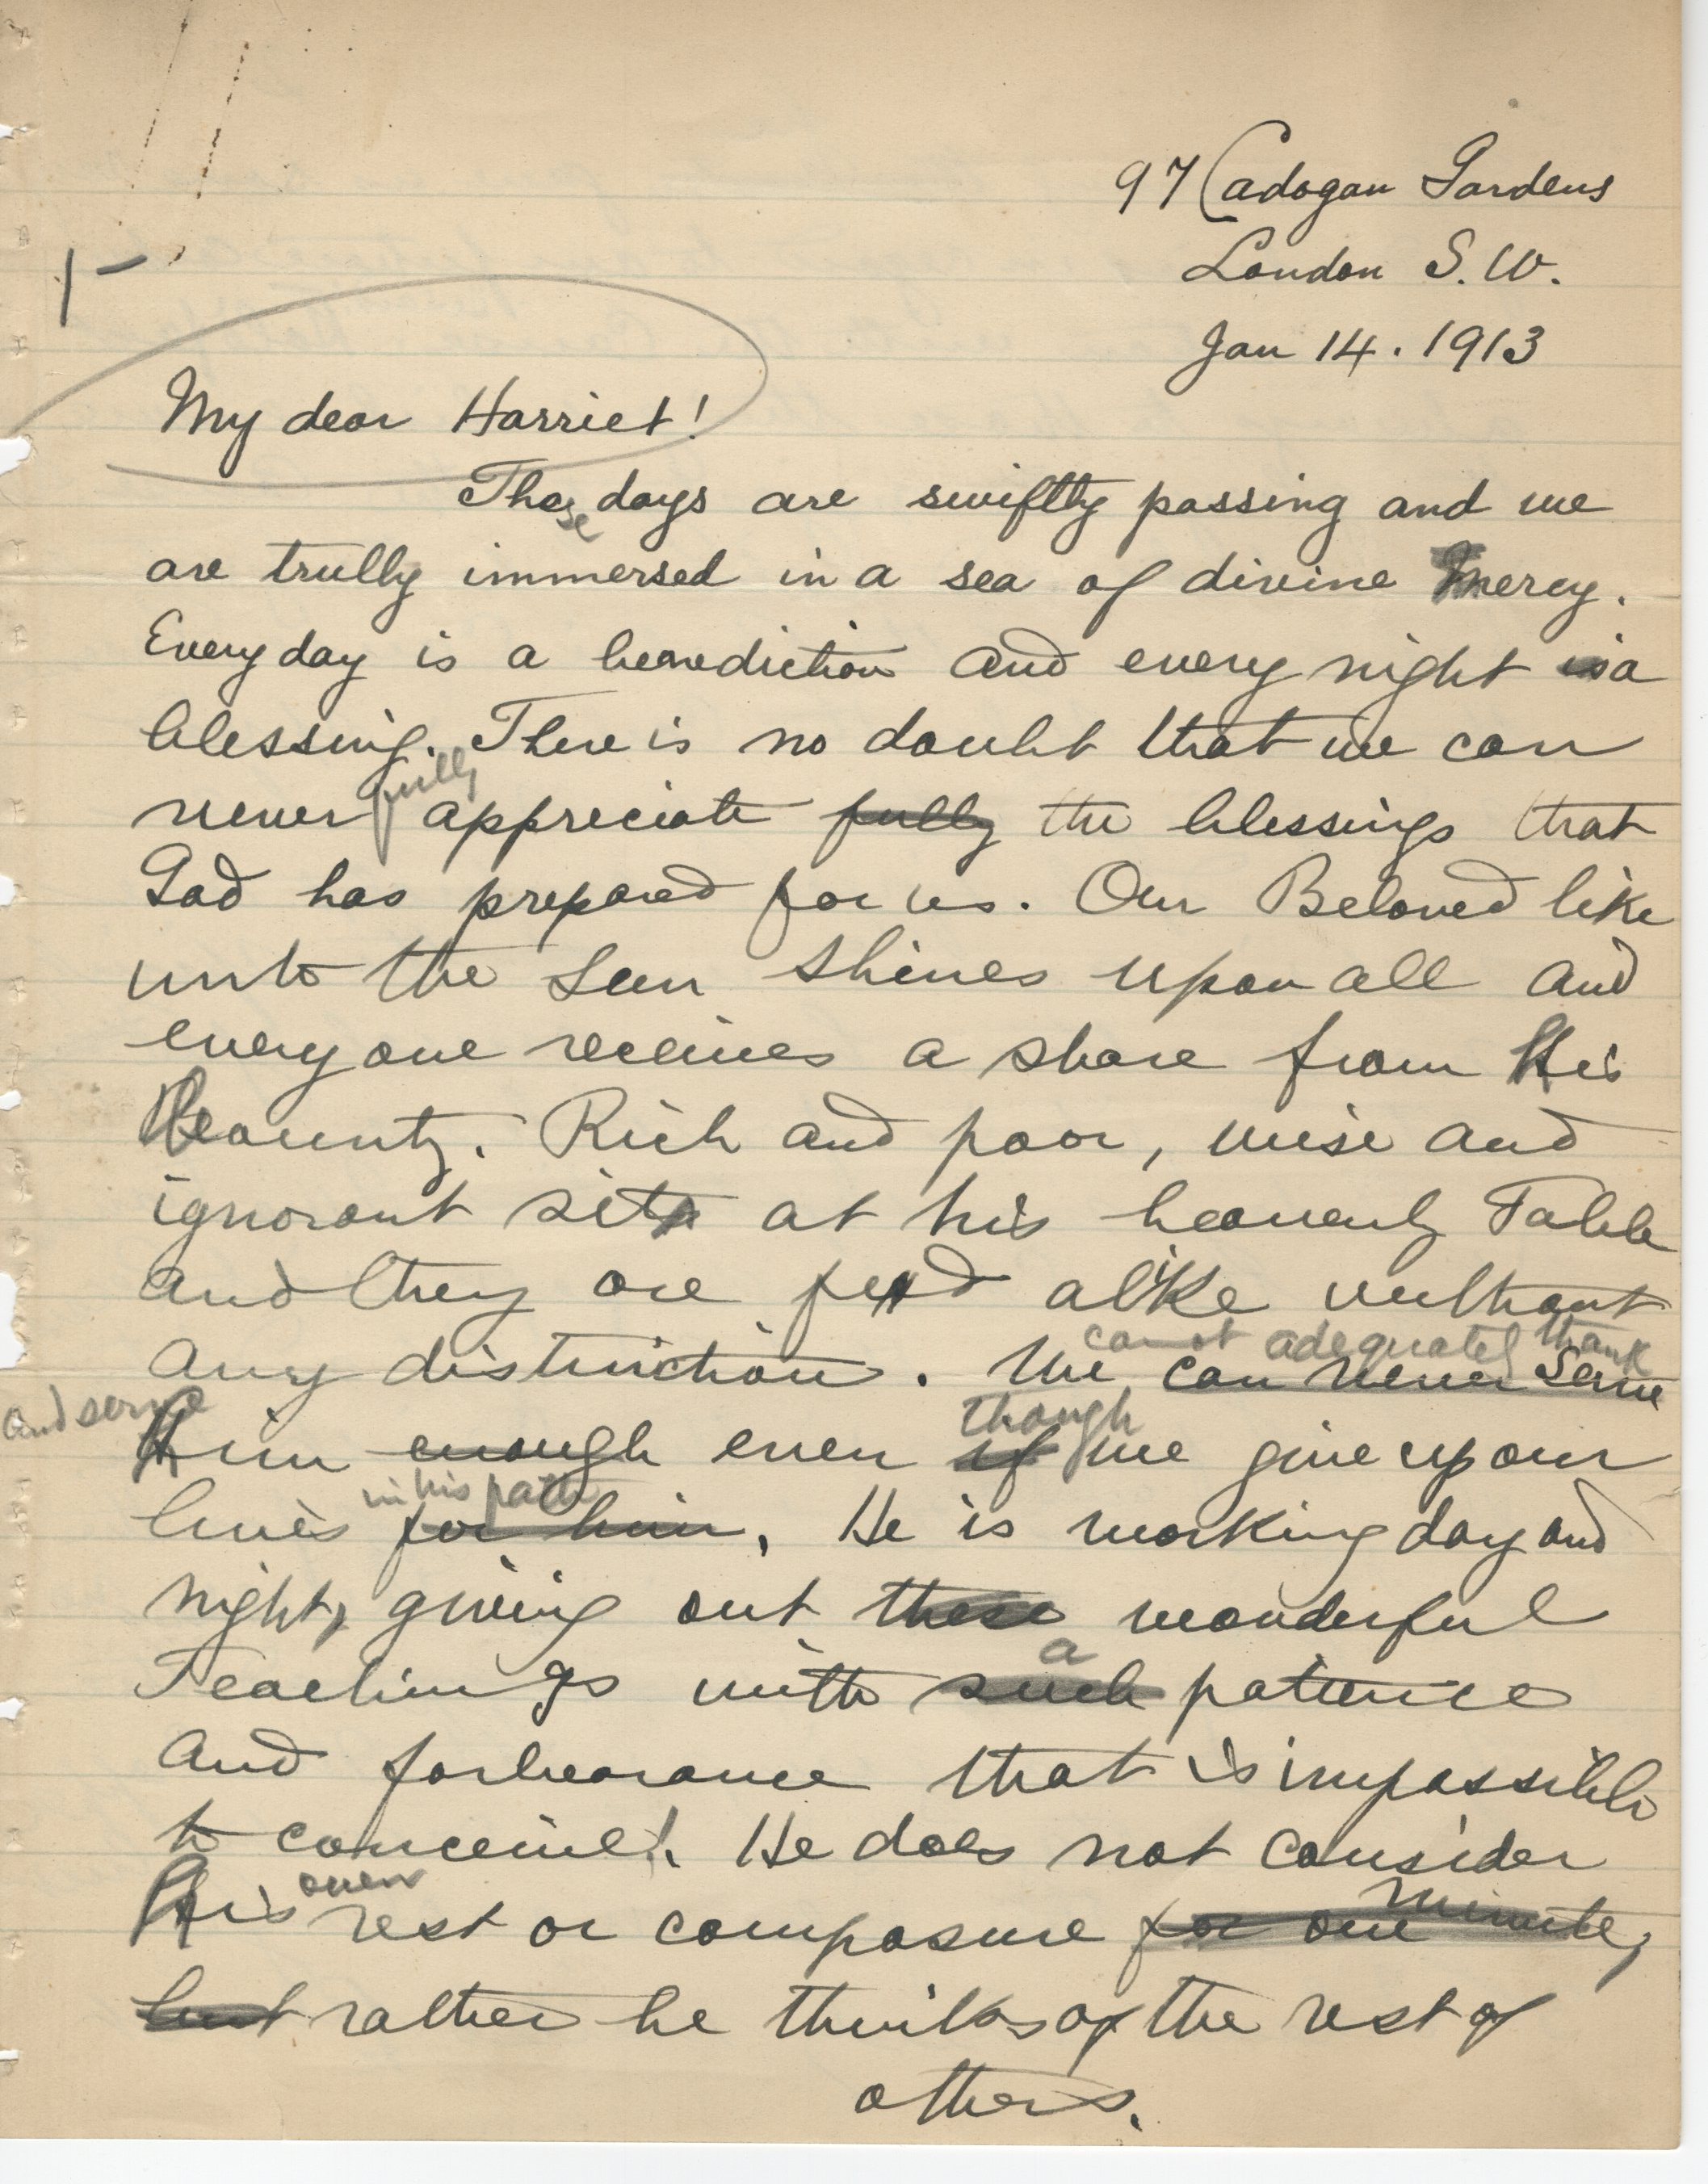 97 Cadogan Gardens
London S. W.
Jan 14. 1913
1-
My dear Harriet!
These days are swiftly passing and we
are trully immersed in a sea of divine mercy.
Every day is a benediction and every night is a
blessing. There is no doubt that we can
fully
never appreciate fully the blessings that
God has prepared for us. Our Beloved like
unto the Sun shines upon all and
everyone receives a share from His
Bounty. Rich and poor, wise and
ignorant sit at his heavenly Table
and they are fed alike without
cannot adequately thank
any distinction. We can never serve
and serve
though
Him enough even if we give up our
in his path
lives for him. He is working day and
night, giving out these wonderful
a
Teachings with such patience
and forbearance that is impossible
to conceive! He does not consider
own
His rest or composure for one minute,
but rather he thinks of the rest of
others.